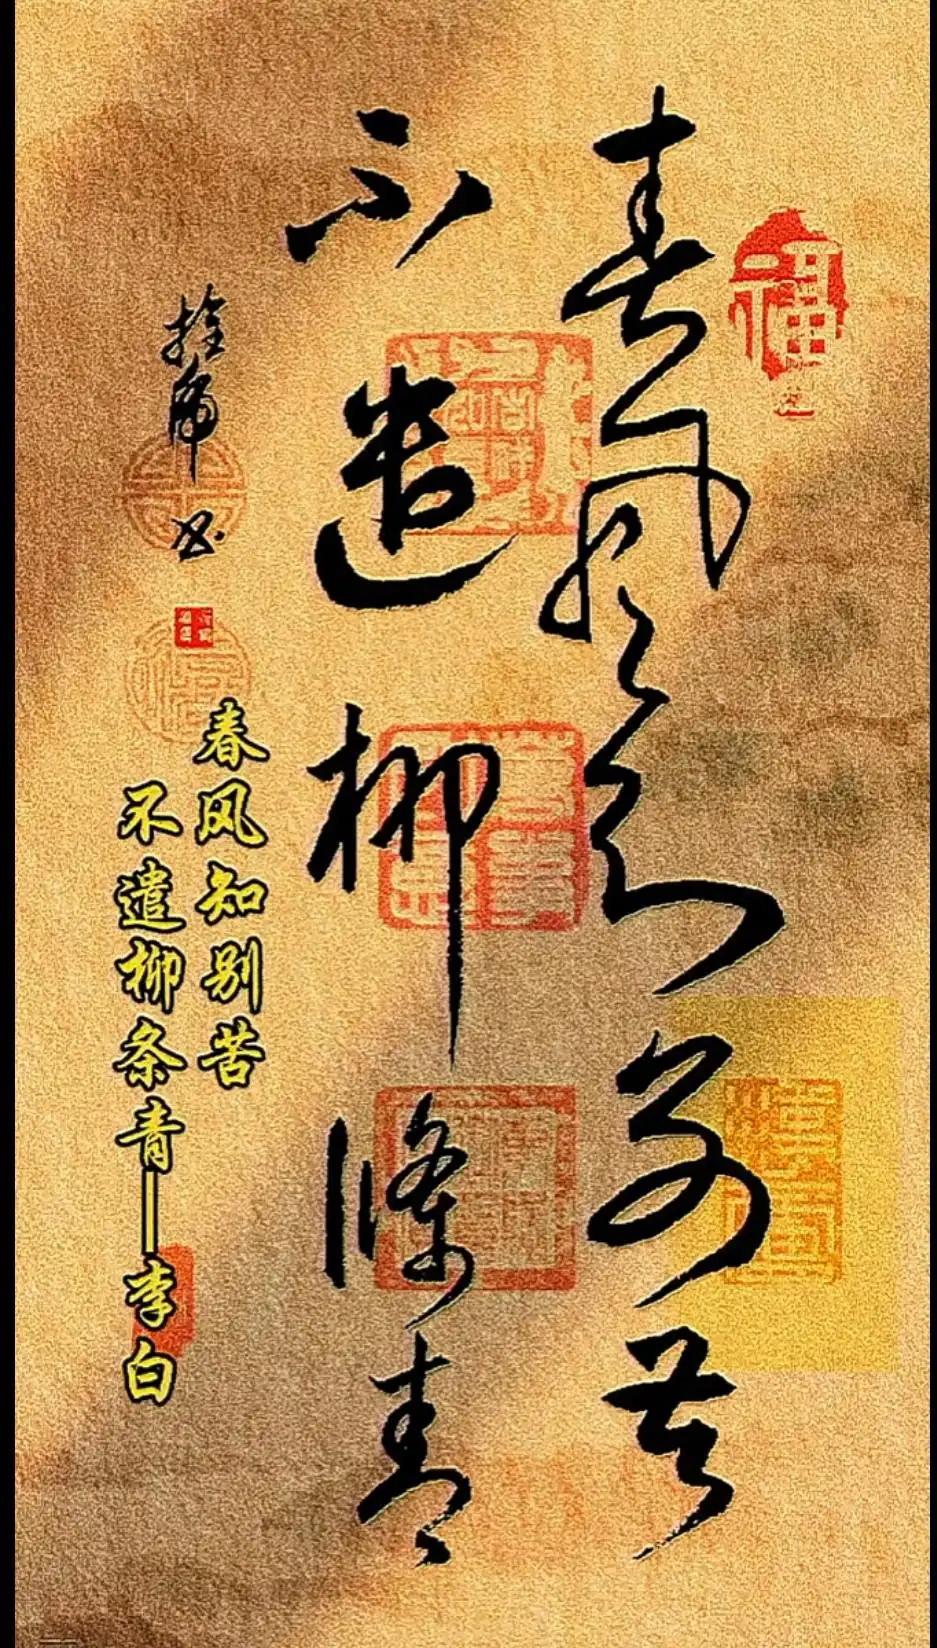 春风知别苦
不遣柳條青
拴席书
福
春风知别苦
不遣柳条青——李白